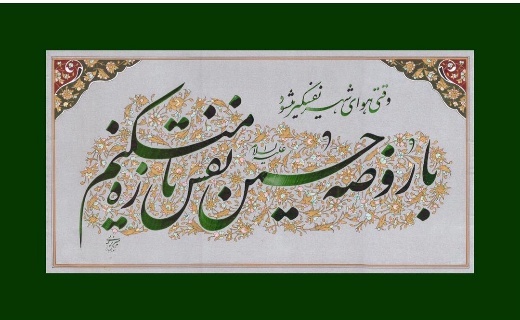 وقتی هوای شهر نفسگیر میشود
با روضه حسین علیه السلام نفس تازه میکنیم